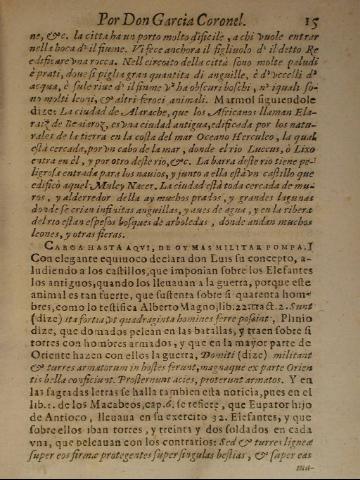 Por Don Garcia Coronel. 15
ne, &c. la città ha un porto molto dificile, a chi vuole entrar
nella boca d'il fiume. Vi fece anchora il figliuolo d'il detto Re
edificare vna rocca. Nell circoito della città sono molte paludi
è prati, doue si piglia gran quantita di anguille, è d'vccelli d'
acqua, è sule riue d'il fiume v' ha obscuri boschi, ne iquali so-
no molti leoni, & altri feroci animali. Marmol siguiendole
dize: La ciudad de Alarache, que los Africanos llaman Ela-
raiz de es vna ciudad antigua, edificada por los natu-
rales de la tierra en la costa del mar Oceano Herculeo, la qual
està cercada, por vn cabo de la mar, donde el rio Luccus, ò Lixo
entra en él, y por otro deste rio, &c. La barra deste rio tiene pe-
ligrosa entrada para los nauios, y junto a ella està vn castillo que
edificò aquel Muley Nacer. La ciudad està toda cercada de mu-
ros, y alderredor della ay muchos prados, y grandes lagunas
donde se crian infinitas anguillas, y aues de agua, y en la ribera
del rio estan espesos bosques de arboledas, donde andan muchos
leones, y otras fieras.
CARGA HASTA AQVI, DE OY MAS MILITAR POMPA.]
Con elegante equiuoco declara don Luis su concepto, a-
ludiendo a los castillos, que imponian sobre los Elefantes
los antiguos, quando los lleuauan a la guerra, porque este
animal es tan fuerte, que sustenta sobre si quarenta hom-
bres, como lo testifica Alberto Magno, lib. 22. tract. 2. Sunt
(dize) ita fortia, vt quadraginta homines ferre possint. Plinio
dize, que domados pelean en las batallas, y traen sobre si
torres con hombres armados, y que en la mayor parte de
Oriente hazen con ellos la guerra, Domiti (dize) militant
& turres armatorum in hostes ferunt, magnaque ex parte Orien
tis bella conficiunt. Prosternunt acies, proterunt armatos. Y en
las sagradas letras se halla tambien esta noticia, pues en el
lib. 1. de los Macabeos, cap. 6. se refiere, que Eupator hijo
de Antioco, lleuaua en su exercito 32. Elefantes, y que
sobre ellos iban torres, y treinta y dos soldados en cada
vna, que peleauan con los contrarios: Sed & turres ligneæ
super eos firmæ protegentes super singulas bestias, & super eas
ma-